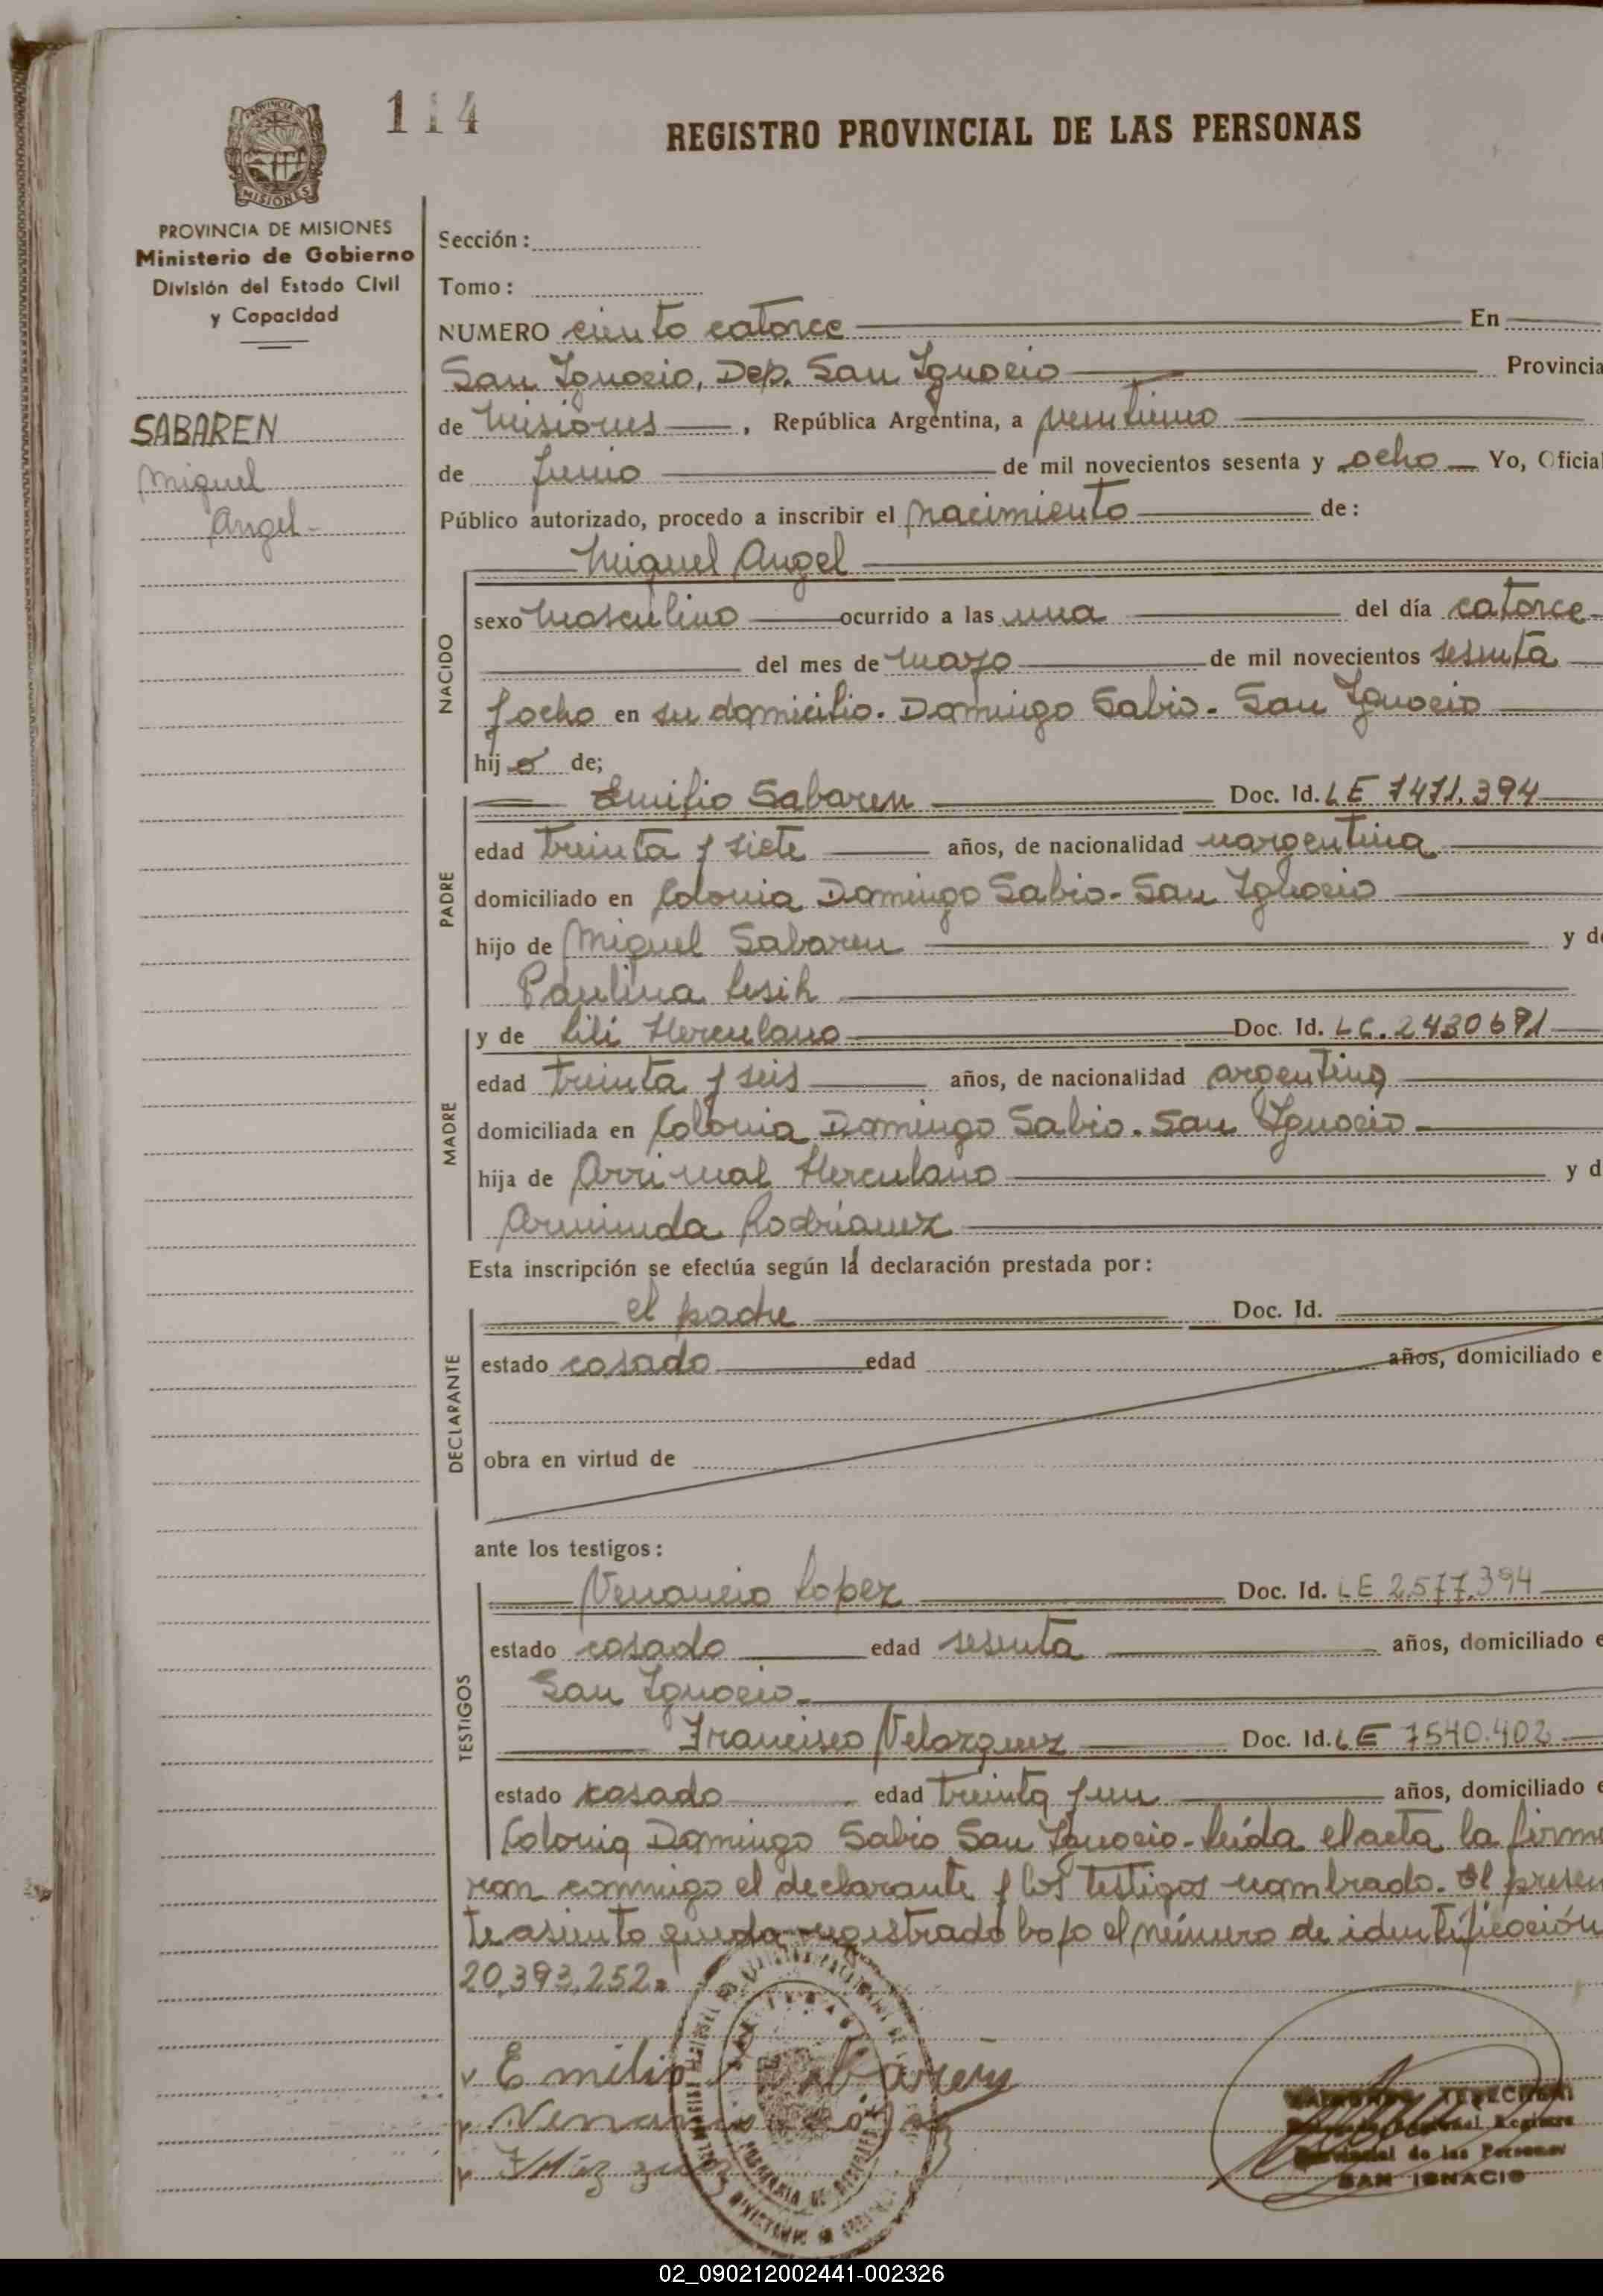 114
REGISTRO PROVINCIAL DE LAS PERSONAS
PROVINCIA DE MISIONES
Ministerio de Gobierno
División del Estado Civil
y Capacidad
SABAREN
Miguel
Angel-
Sección:
Tomo:
NUMERO ciento catorce En
San Ignacio, Dep. San Ignacio Provincia
de Misiones, República Argentina, a ventiuno
de Junio de mil novecientos sesenta y ocho Yo, Oficial
Público autorizado, procedo a inscribir el nacimiento de:
NACIDO
Miguel Angel
sexo masculino ocurrido a las una del día catorce
del mes de mayo de mil novecientos sesenta
y ocho en su domicilio. Domingo Sabio. San Ignacio
hijo de;
PADRE
Emilio Sabaren Doc. Id. LE 7471.394
edad treinta y siete años, de nacionalidad argentina
domiciliado en Colonia Domingo Sabio-San Ignacio
hijo de Miguel Sabaren y de
Paulina Lesih
MADRE
y de Lili Herculano Doc. Id. LC. 2430671
edad treinta y seis años, de nacionalidad argentina
domiciliada en Colonia Domingo Sabio. San Ignacio
hija de Herculano y d
Arminda Rodríguez
Esta inscripción se efectúa según la declaración prestada por:
DECLARANTE
el padre Doc. Id.
estado casado edad años, domiciliado e
obra en virtud de
ante los testigos:
TESTIGOS
Venancio Lopez Doc. Id. LE 2.577.394
estado casado edad sesenta años, domiciliado e
San Ignacio.
Francisco Velazquez Doc. Id. LE 7540.402
estado casado edad treinta y un años, domiciliado e
Colonia Domingo Sabio San Ignacio-Leída el acta la firma
ron conmigo el declarante y los testigos nombrado. El presen
te asiento queda registrado bajo el número de identificación
20.393.252.
Emilio Sabaren
Venancio Lopez
Provincial de las Personas
SAN IGNACIO
02_090212002441-002326